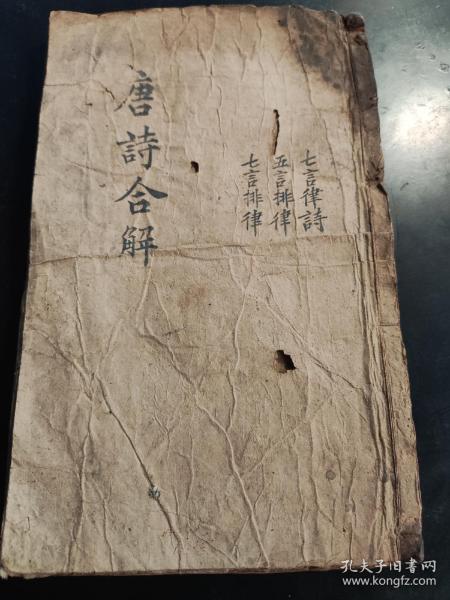 七言律詩
五言排律
七言排律
唐詩合解
孔夫子旧书网
www.kongfz.com